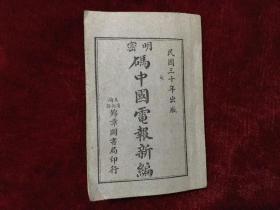 民國三十年出版
明密
碼中國電報新編
錦章圖書局印行